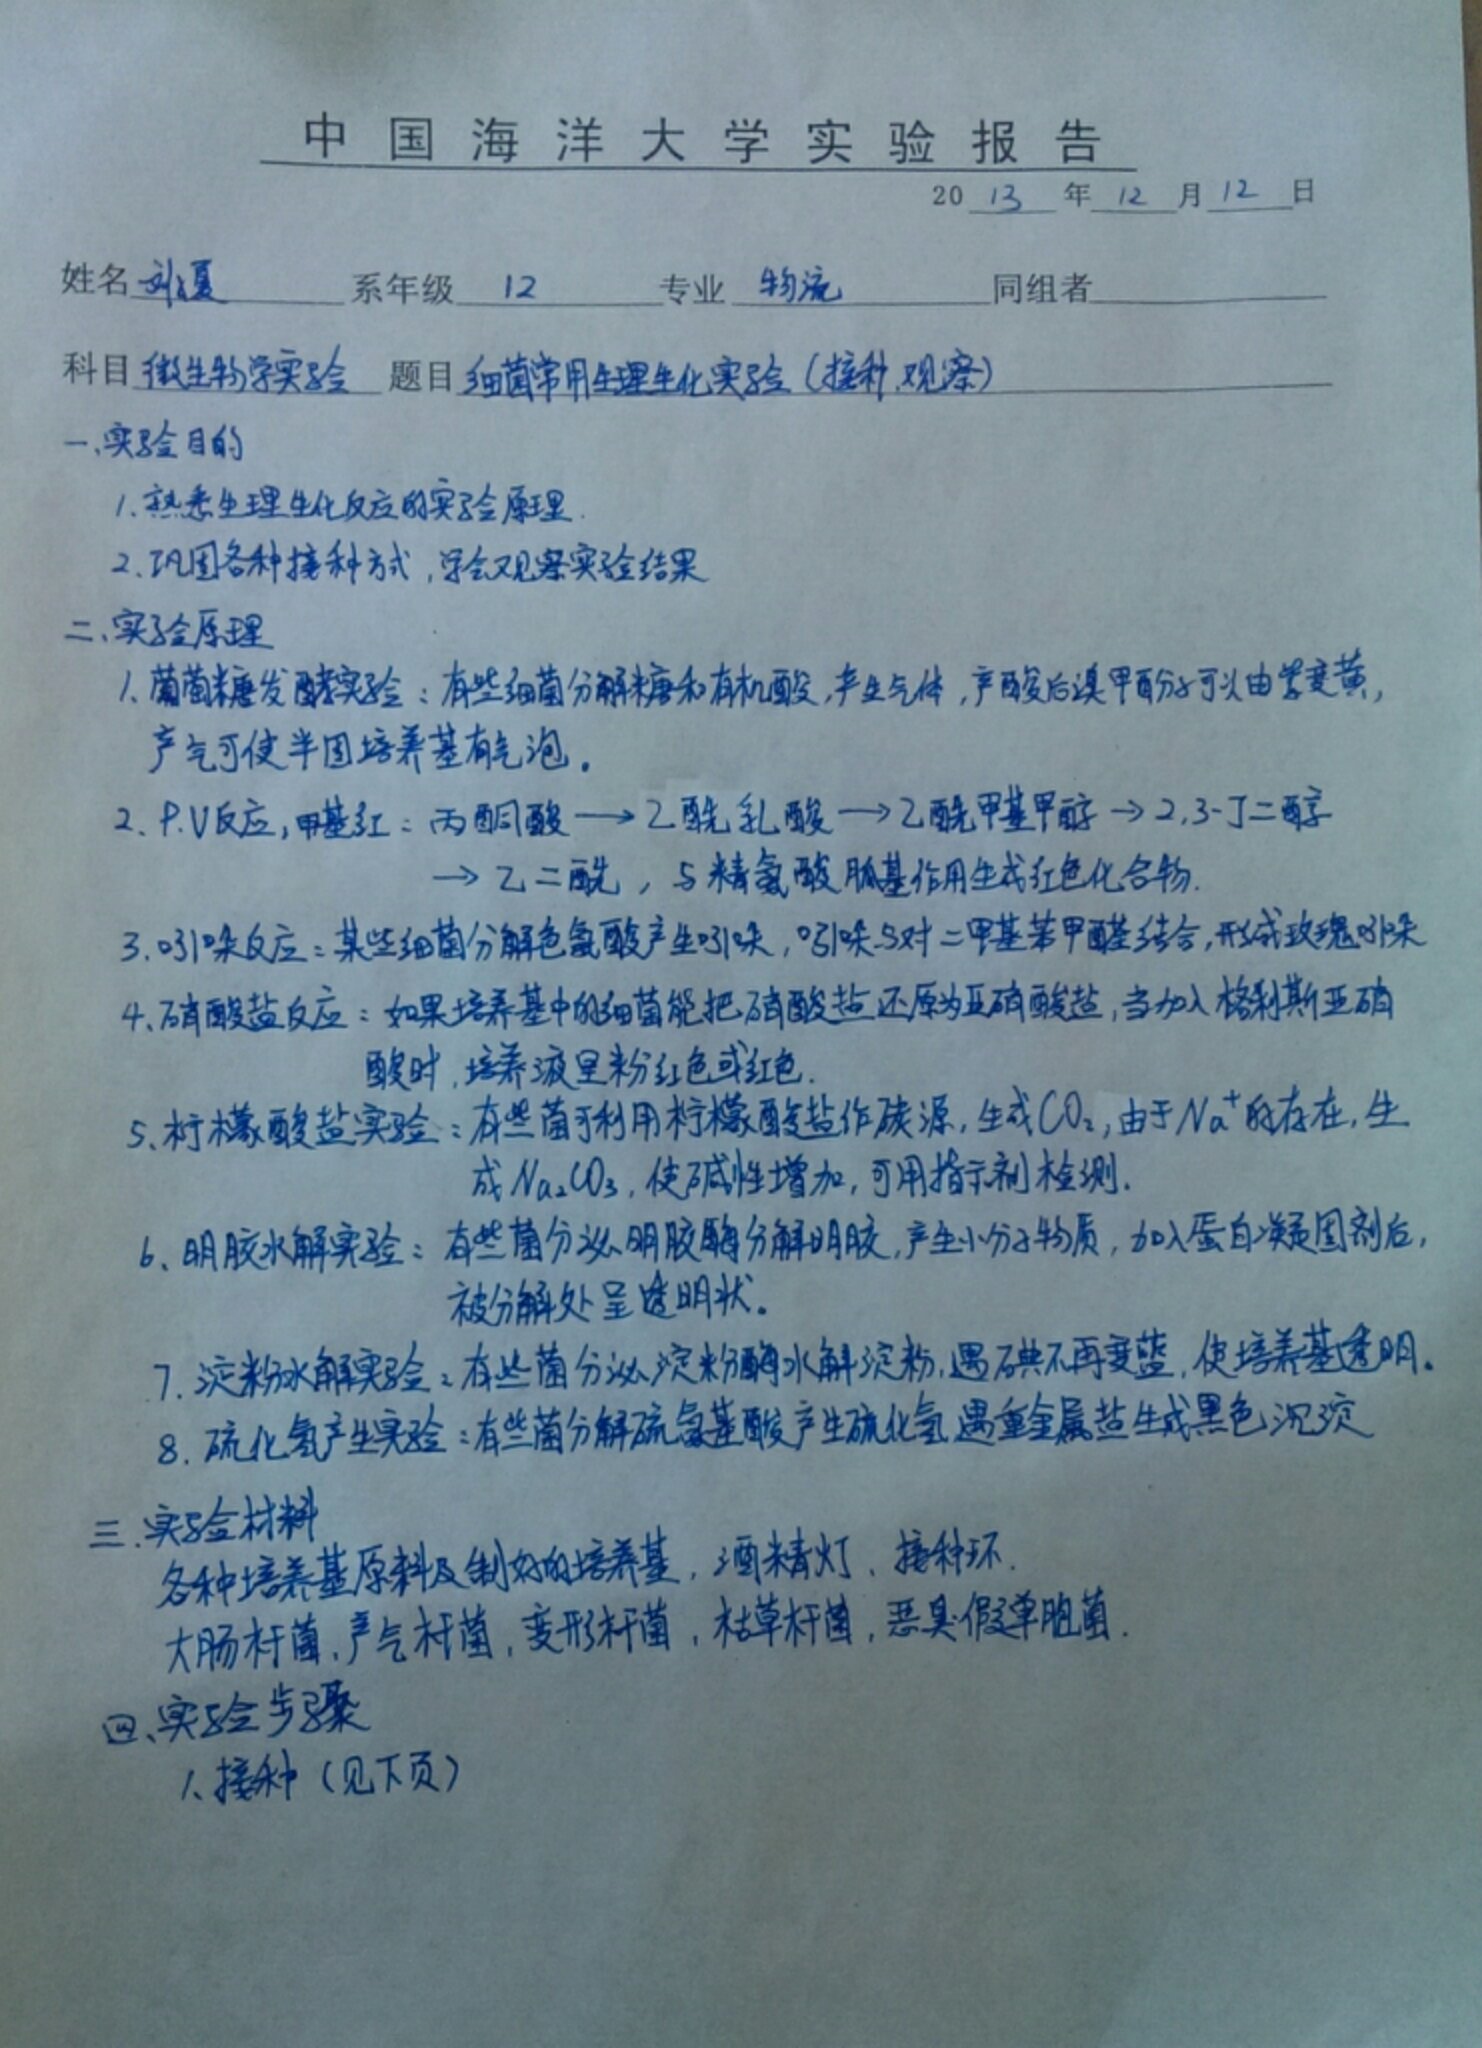 中国海洋大学实验报告
2013年12月12日
姓名 刘夏 系年级 12 专业 物流 同组者
科目 微生物学实验 题目 细菌常用生理生化实验(接种、观察)
一、实验目的
1.熟悉生理生化反应的实验原理.
2.巩固各种接种方式,学会观察实验结果
二、实验原理
1.葡萄糖发酵实验:有些细菌分解糖和有机酸,产生气体,产酸后溴甲酚可以由紫变黄,
产气可使半固培养基有气泡。
2. P.V反应,甲基红:丙酮酸→乙酰乳酸→乙酰甲基甲醇→2,3-丁二醇
→乙二酰,与精氨酸胍基作用生成红色化合物.
3.吲哚反应:某些细菌分解色氨酸产生吲哚,吲哚与对二甲基苯甲醛结合,形成玫瑰吲哚
4、硝酸盐反应:如果培养基中的细菌能把硝酸盐还原为亚硝酸盐,当加入格利斯亚硝
酸时,培养液呈粉红色或红色.
5、柠檬酸盐实验:有些菌可利用柠檬酸盐作碳源,生成CO₂,由于Na⁺的存在,生
成Na₂CO₃,使碱性增加,可用指示剂检测.
6、明胶水解实验:有些菌分泌明胶酶分解明胶,产生小分子物质,加入蛋白凝固剂后,
被分解处呈透明状。
7.淀粉水解实验:有些菌分泌淀粉酶水解淀粉,遇碘不再变蓝,使培养基透明。
8.硫化氢产生实验:有些菌分解硫氨基酸产生硫化氢遇重金属盐生成黑色沉淀
三.实验材料
各种培养基原料及制好的培养基,酒精灯、接种环.
大肠杆菌,产气杆菌,变形杆菌,枯草杆菌,恶臭假单胞菌.
四、实验步骤
1、接种(见下页)